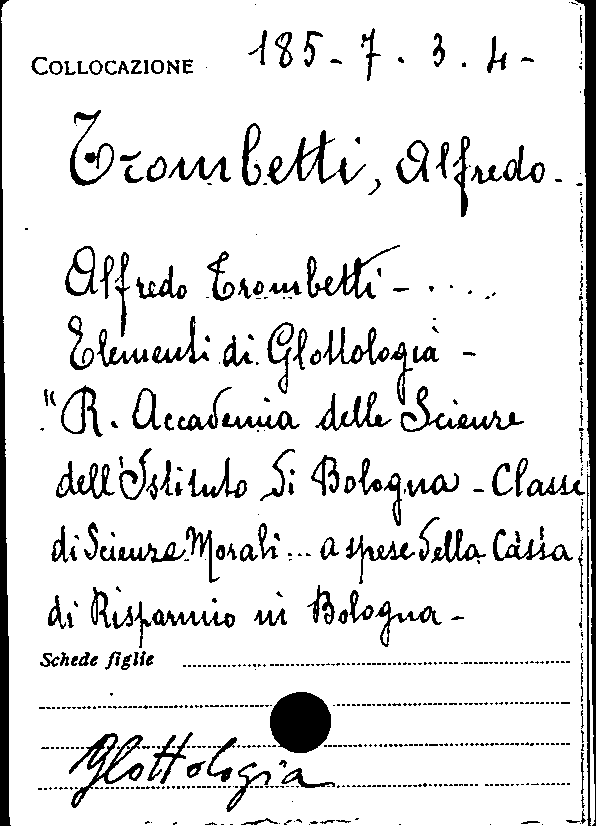 COLLOCAZIONE 185-7.3.4-
Trombetti, Alfredo.
Alfredo Trombetti - ....
Elementi di Glottologia -
"R. Accademia delle Scienze
dell'Istituto di Bologna - Classe
di Scienze Morali... a spese della Cassa
di Risparmio in Bologna -
Schede figlie
Glottologia